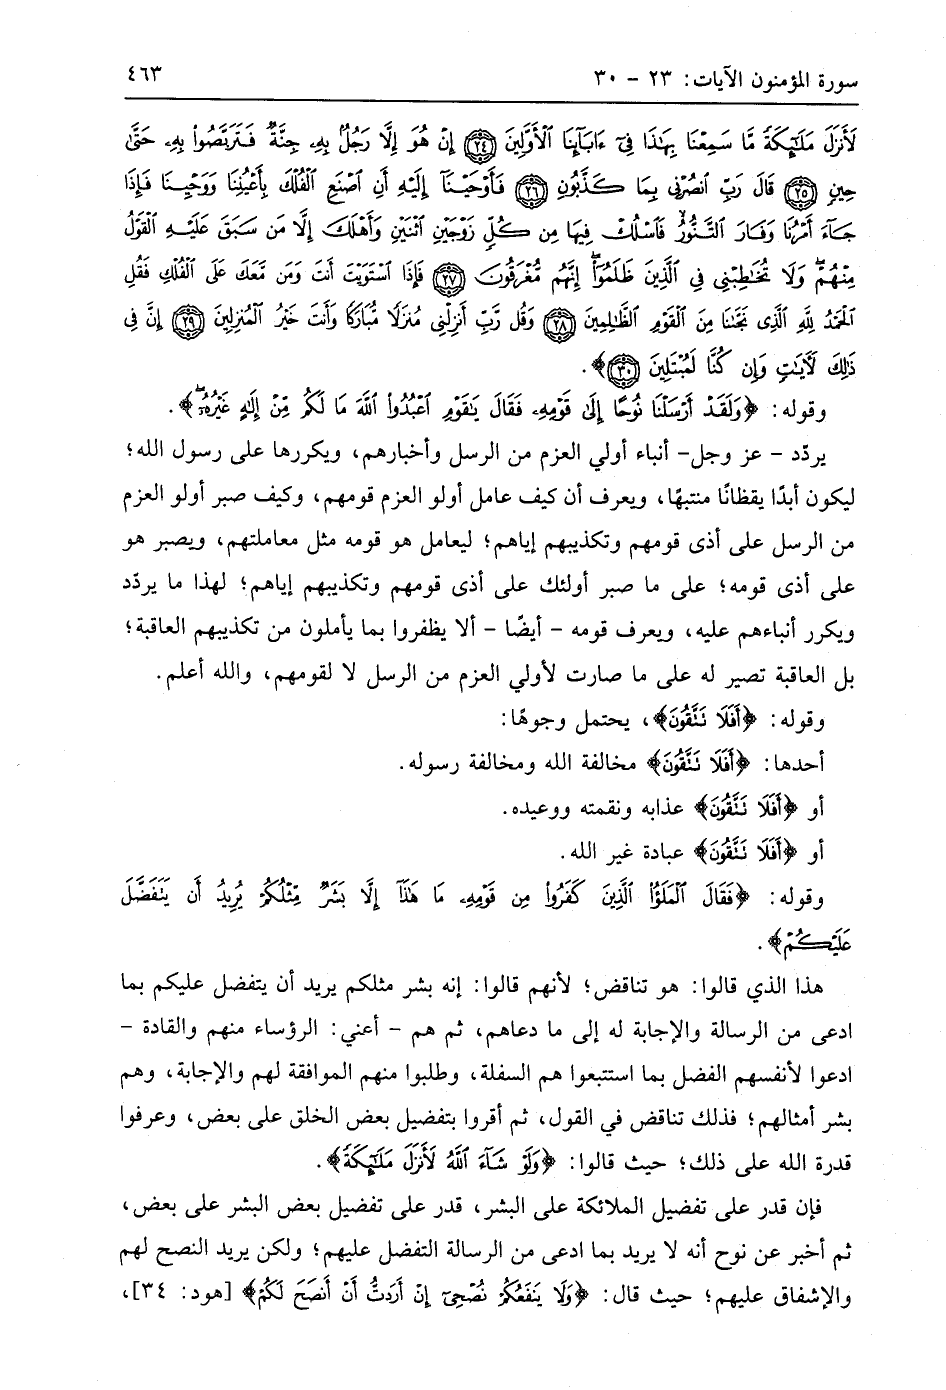 سورة المؤمنون الآيات: ٢٣ - ٣٠ ٤٦٣
لَأَنزَلَ مَلَٰٓئِكَةً مَّا سَمِعْنَا بِهَٰذَا فِىٓ ءَابَآئِنَا ٱلْأَوَّلِينَ ﴿٢٤﴾ إِنْ هُوَ إِلَّا رَجُلٌۢ بِهِۦ جِنَّةٌ فَتَرَبَّصُوا۟ بِهِۦ حَتَّىٰ
حِينٍ ﴿٢٥﴾ قَالَ رَبِّ ٱنصُرْنِى بِمَا كَذَّبُونِ ﴿٢٦﴾ فَأَوْحَيْنَآ إِلَيْهِ أَنِ ٱصْنَعِ ٱلْفُلْكَ بِأَعْيُنِنَا وَوَحْيِنَا فَإِذَا
جَآءَ أَمْرُنَا وَفَارَ ٱلتَّنُّورُ فَٱسْلُكْ فِيهَا مِن كُلٍّ زَوْجَيْنِ ٱثْنَيْنِ وَأَهْلَكَ إِلَّا مَن سَبَقَ عَلَيْهِ ٱلْقَوْلُ
مِنْهُمْ وَلَا تُخَٰطِبْنِى فِى ٱلَّذِينَ ظَلَمُوٓا۟ إِنَّهُم مُّغْرَقُونَ ﴿٢٧﴾ فَإِذَا ٱسْتَوَيْتَ أَنتَ وَمَن مَّعَكَ عَلَى ٱلْفُلْكِ فَقُلِ
ٱلْحَمْدُ لِلَّهِ ٱلَّذِى نَجَّىٰنَا مِنَ ٱلْقَوْمِ ٱلظَّٰلِمِينَ ﴿٢٨﴾ وَقُل رَّبِّ أَنزِلْنِى مُنزَلًا مُّبَارَكًا وَأَنتَ خَيْرُ ٱلْمُنزِلِينَ ﴿٢٩﴾ إِنَّ فِى
ذَٰلِكَ لَءَايَٰتٍ وَإِن كُنَّا لَمُبْتَلِينَ ﴿٣٠﴾﴾.
وقوله: ﴿وَلَقَدْ أَرْسَلْنَا نُوحًا إِلَىٰ قَوْمِهِۦ فَقَالَ يَٰقَوْمِ ٱعْبُدُوا۟ ٱللَّهَ مَا لَكُم مِّنْ إِلَٰهٍ غَيْرُهُۥٓ﴾.
يردّد - عز وجل- أنباء أولي العزم من الرسل وأخبارهم، ويكررها على رسول الله؛
ليكون أبدًا يقظانًا منتبهًا، ويعرف أن كيف عامل أولو العزم قومهم، وكيف صبر أولو العزم
من الرسل على أذى قومهم وتكذيبهم إياهم؛ ليعامل هو قومه مثل معاملتهم، ويصبر هو
على أذى قومه؛ على ما صبر أولئك على أذى قومهم وتكذيبهم إياهم؛ لهذا ما يردّد
ويكرر أنباءهم عليه، ويعرف قومه - أيضًا - ألا يظفروا بما يأملون من تكذيبهم العاقبة؛
بل العاقبة تصير له على ما صارت لأولي العزم من الرسل لا لقومهم، والله أعلم.
وقوله: ﴿أَفَلَا تَتَّقُونَ﴾، يحتمل وجوهًا:
أحدها: ﴿أَفَلَا تَتَّقُونَ﴾ مخالفة الله ومخالفة رسوله.
أو ﴿أَفَلَا تَتَّقُونَ﴾ عذابه ونقمته ووعيده.
أو ﴿أَفَلَا تَتَّقُونَ﴾ عبادة غير الله.
وقوله: ﴿فَقَالَ ٱلْمَلَؤُا۟ ٱلَّذِينَ كَفَرُوا۟ مِن قَوْمِهِۦ مَا هَٰذَآ إِلَّا بَشَرٌ مِّثْلُكُمْ يُرِيدُ أَن يَتَفَضَّلَ
عَلَيْكُمْ﴾.
هذا الذي قالوا: هو تناقض؛ لأنهم قالوا: إنه بشر مثلكم يريد أن يتفضل عليكم بما
ادعى من الرسالة والإجابة له إلى ما دعاهم، ثم هم - أعني: الرؤساء منهم والقادة -
ادعوا لأنفسهم الفضل بما استتبعوا هم السفلة، وطلبوا منهم الموافقة لهم والإجابة، وهم
بشر أمثالهم؛ فذلك تناقض في القول، ثم أقروا بتفضيل بعض الخلق على بعض، وعرفوا
قدرة الله على ذلك؛ حيث قالوا: ﴿وَلَوْ شَآءَ ٱللَّهُ لَأَنزَلَ مَلَٰٓئِكَةً﴾.
فإن قدر على تفضيل الملائكة على البشر، قدر على تفضيل بعض البشر على بعض،
ثم أخبر عن نوح أنه لا يريد بما ادعى من الرسالة التفضل عليهم؛ ولكن يريد النصح لهم
والإشفاق عليهم؛ حيث قال: ﴿وَلَا يَنفَعُكُمْ نُصْحِىٓ إِنْ أَرَدتُّ أَنْ أَنصَحَ لَكُمْ﴾ [هود: ٣٤]،